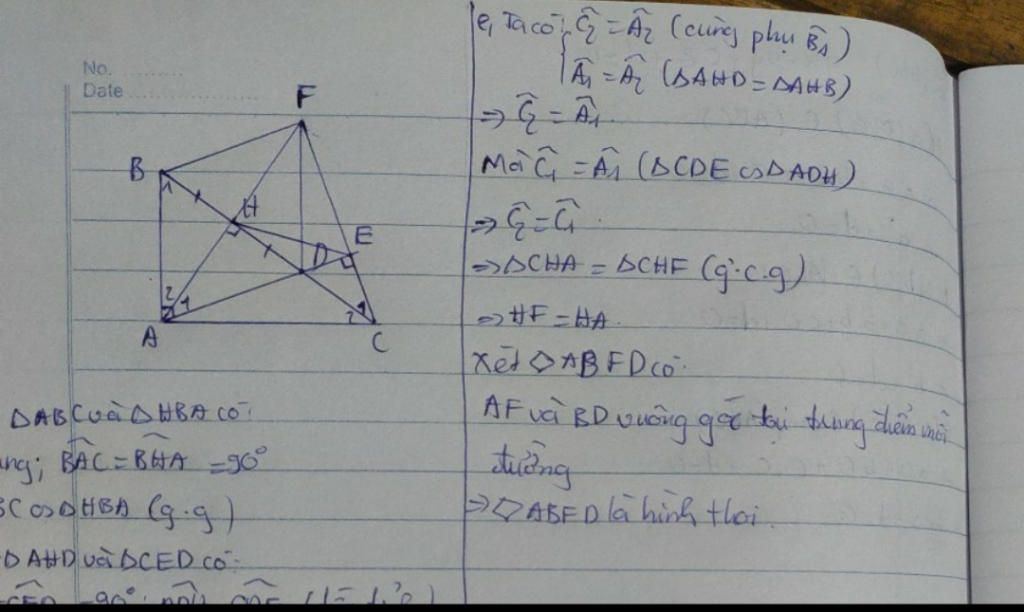 No.
Date
F
B
1
H
D
E
2
1
1
2
A
C
ΔABC và ΔHBA có:
BAC^ = BHA^ = 90°
ΔHBA (g.g)
ΔAHD và ΔCED có:
= 90°
e, Ta có: Ĉ2 = Â2 (cùng phụ B̂1)
Â1 = Â2 (ΔAHD = ΔAHB)
⇒ Ĉ2 = Â1.
Mà Ĉ1 = Â1 (ΔCDE ∽ ΔADH)
⇒ Ĉ2 = Ĉ1
⇒ ΔCHA = ΔCHF (g.c.g)
⇒ HF = HA.
Xét ◇ABFD có:
AF và BD vuông góc tại trung điểm mỗi
đường
⇒ ◇ABFD là hình thoi.